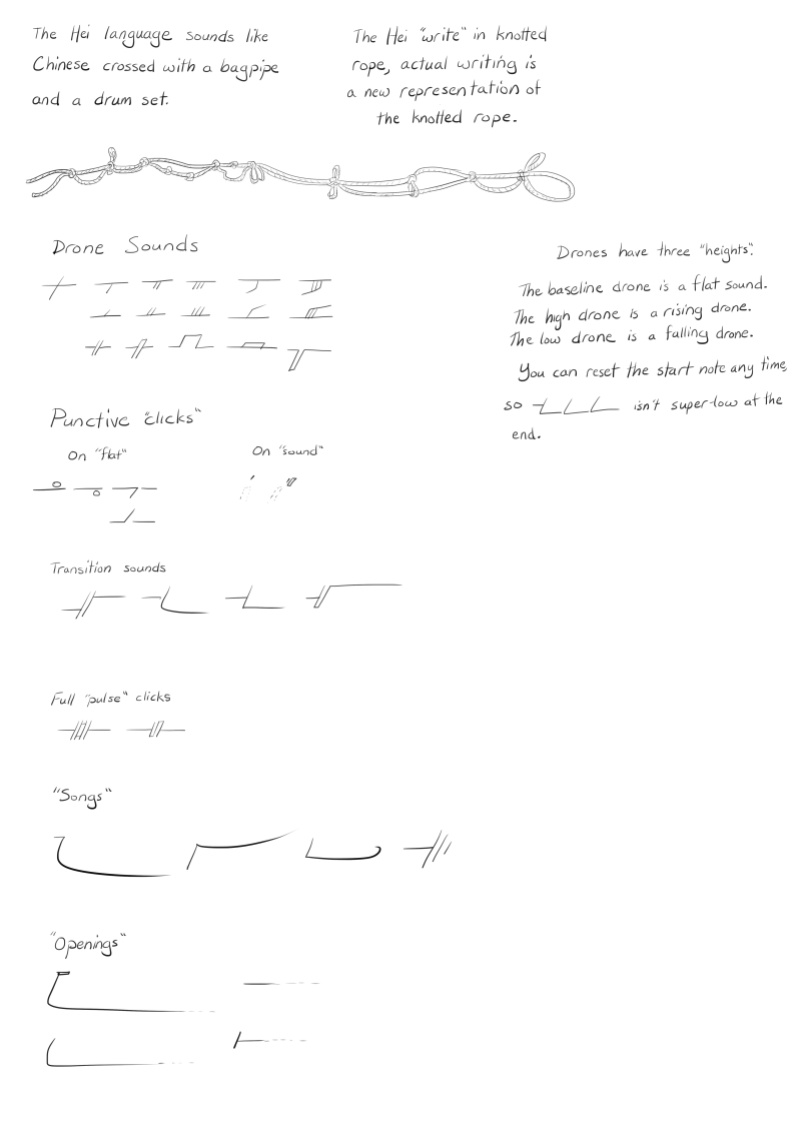 The Hei language sounds like
Chinese crossed with a bagpipe
and a drum set.
The Hei "write" in knotted
rope, actual writing is
a new representation of
the knotted rope.
Drone Sounds
Drones have three "heights".
The baseline drone is a flat sound.
The high drone is a rising drone.
The low drone is a falling drone.
You can reset the start note any time,
so isn't super-low at the
end.
Punctive "clicks"
On "flat"
On "sound"
Transition sounds
Full "pulse" clicks
"Songs"
"Openings"